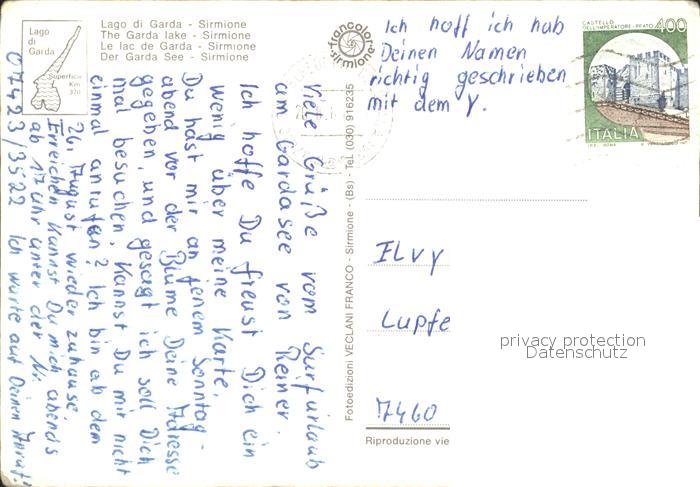 Lago di Garda - Sirmione
The Garda lake - Sirmione
Le lac de Garda - Sirmione
Der Garda See - Sirmione
Lago
di
Garda
Superficie
Km
370
francolore
sirmione
Ich hoff ich hab
Deinen Namen
richtig geschrieben
mit dem Y.
CASTELLO
DELL'IMPERATORE - PRATO
400
ITALIA
Viele Grüße vom Surfurlaub
am Gardasee von Reiner.
Ich hoffe Du freust Dich ein
wenig über meine Karte.
Du hast mir an jenem Sonntag-
abend vor der Blume Deine Adresse
gegeben, und gesagt ich soll Dich
mal besuchen. Kannst Du mir nicht
einmal anrufen? Ich bin ab dem
26. August wieder zuhause.
Erreichen kannst Du mich abends
ab 17 Uhr unter der Nr.
07423/3522 Ich warte auf Deinen Anruf!
Fotoedizioni VECLANI FRANCO - Sirmione - (Bs) - Tel. (030) 916235
Ilvy
Lupfe
7460
privacy protection
Datenschutz
Riproduzione vie